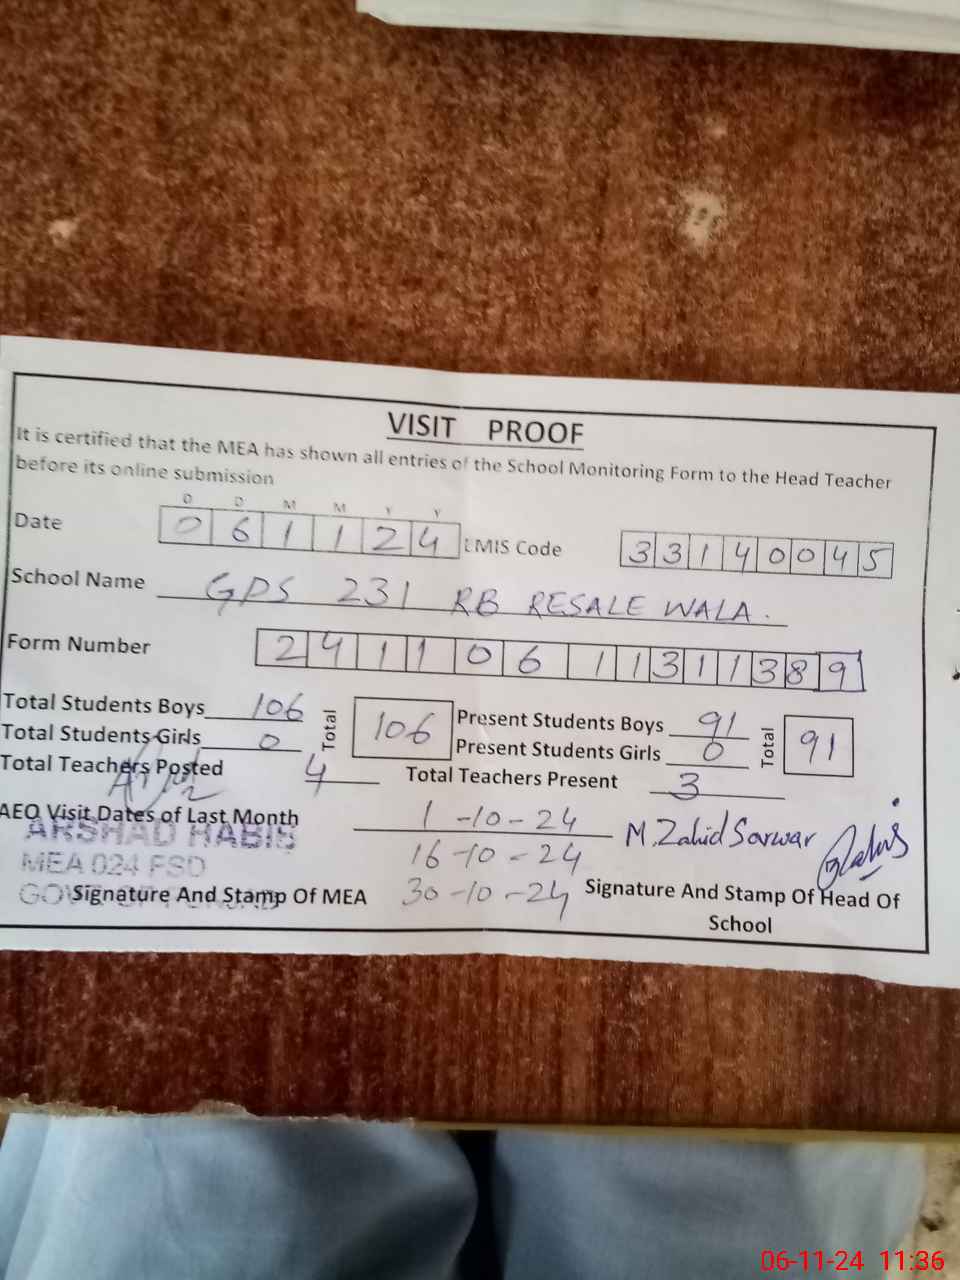 VISIT PROOF
It is certified that the MEA has shown all entries of the School Monitoring Form to the Head Teacher
before its online submission
D D M M Y Y
Date 0 6 1 1 2 4 EMIS Code 3 3 1 4 0 0 4 5
School Name GPS 231 RB RESALE WALA.
Form Number 2 4 1 1 0 6 1 1 3 1 1 3 8 9
Total Students Boys 106 Total 106 Present Students Boys 91 Total 91
Total Students Girls 0 Present Students Girls 0
Total Teachers Posted 4 Total Teachers Present 3
AEO Visit Dates of Last Month 1-10-24
ARSHAD HABIB M.Zahid Sarwar
MEA 024 FSD 16-10-24
Signature And Stamp Of MEA 30-10-24 Signature And Stamp Of Head Of
School
06-11-24 11:36